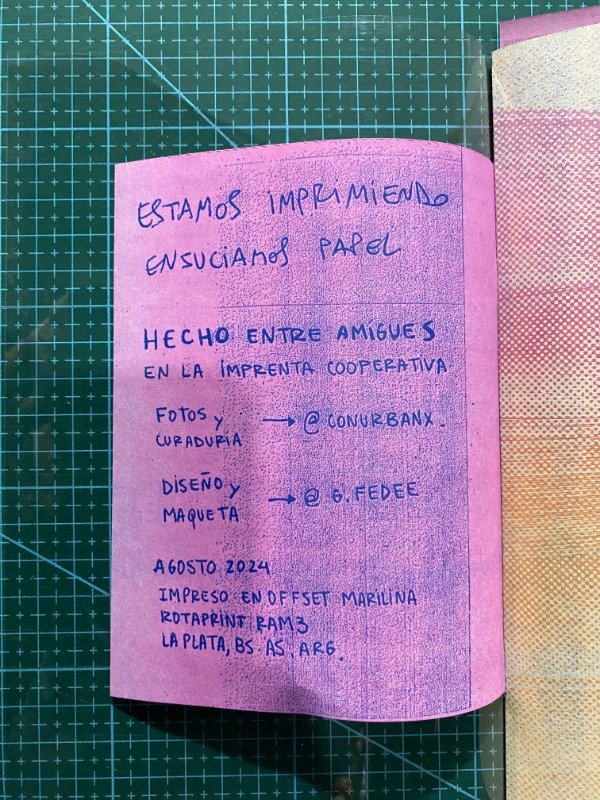 ESTAMOS IMPRIMIENDO
ENSUCIAMOS PAPEL
HECHO ENTRE AMIGUES
EN LA IMPRENTA COOPERATIVA
FOTOS y → @CONURBANX.
CURADURÍA
DISEÑO y → @G.FEDEE
MAQUETA
AGOSTO 2024
IMPRESO EN OFFSET MARILINA
ROTAPRINT RAM3
LA PLATA, BS. AS. ARG.